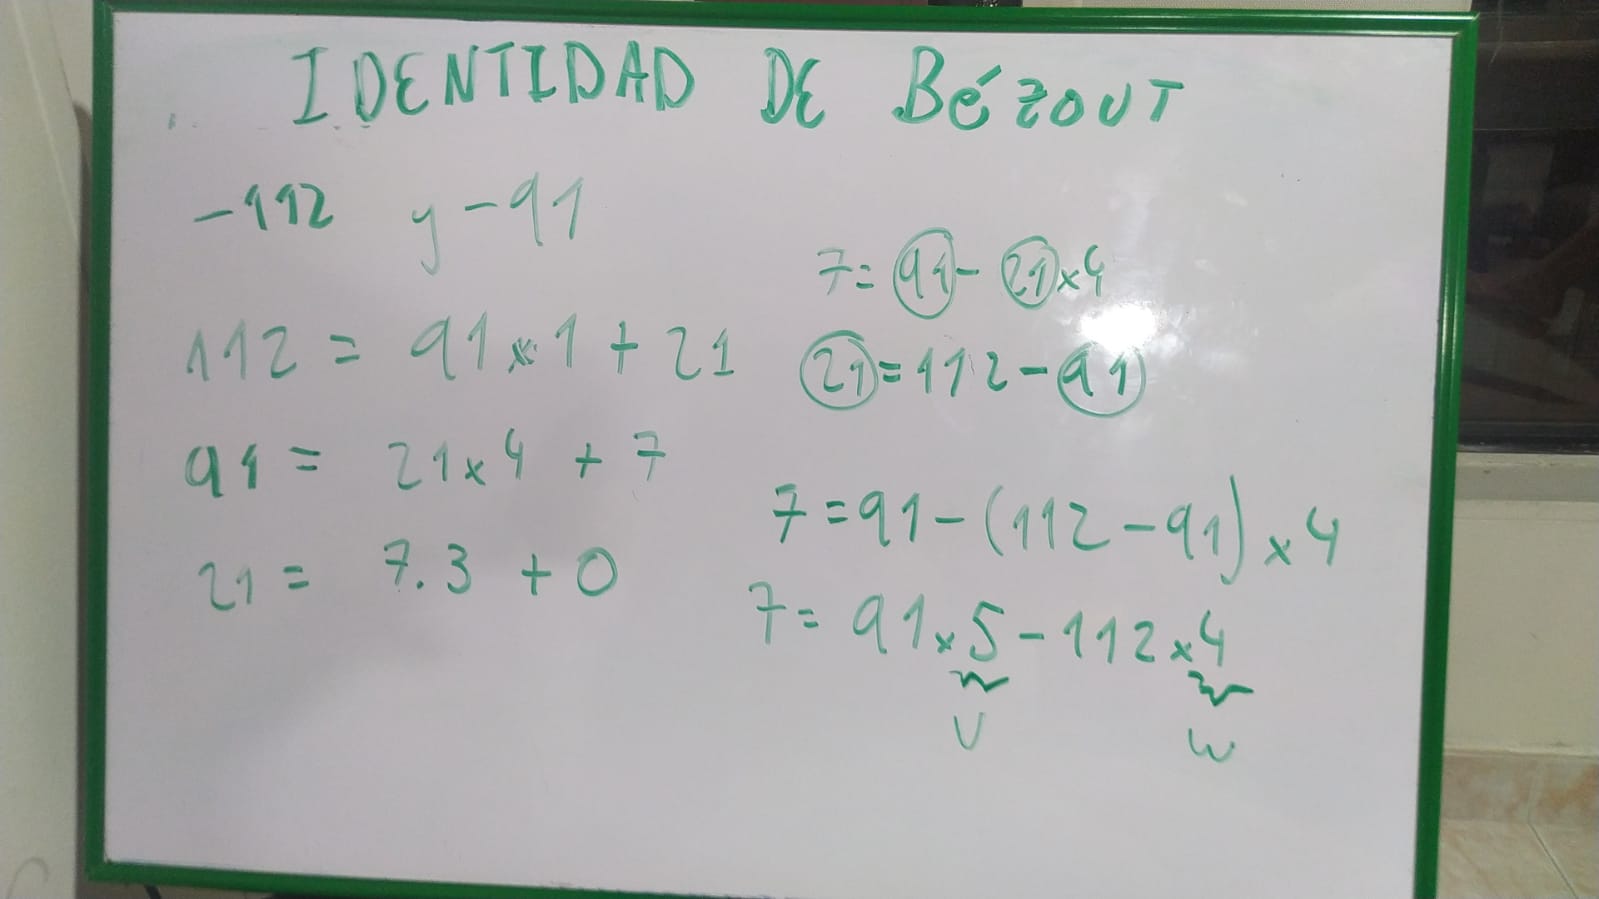 IDENTIDAD DE Bézout
-112 y -91
112 = 91x1 + 21
91 = 21x4 + 7
21 = 7.3 + 0
7= 91- 21x4
21=112-91
7=91-(112-91)x4
7= 91x5-112x4
v w